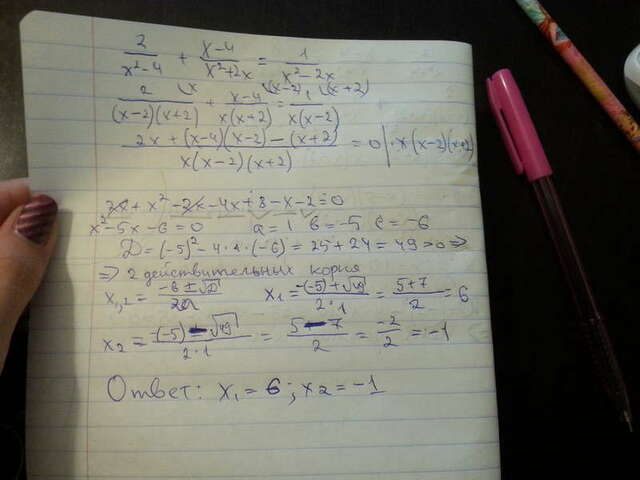 2/(x²-4) + (x-4)/(x²+2x) = 1/(x²-2x)
2/((x-2)(x+2)) + (x-4)/(x(x+2)) = 1/(x(x-2))
(2x + (x-4)(x-2) - (x+2))/(x(x-2)(x+2)) = 0 | · x(x-2)(x+2)
2x + x² - 2x - 4x + 8 - x - 2 = 0
x² - 5x - 6 = 0 a = 1 b = -5 c = -6
D = (-5)² - 4·1·(-6) = 25 + 24 = 49 > 0 ⇒
⇒ 2 действительных корня
x₁,₂ = (-b ± √D)/2a x₁ = (-(-5) + √49)/(2·1) = (5+7)/2 = 6
x₂ = (-(-5) - √49)/(2·1) = (5-7)/2 = -2/2 = -1
Ответ: x₁ = 6; x₂ = -1